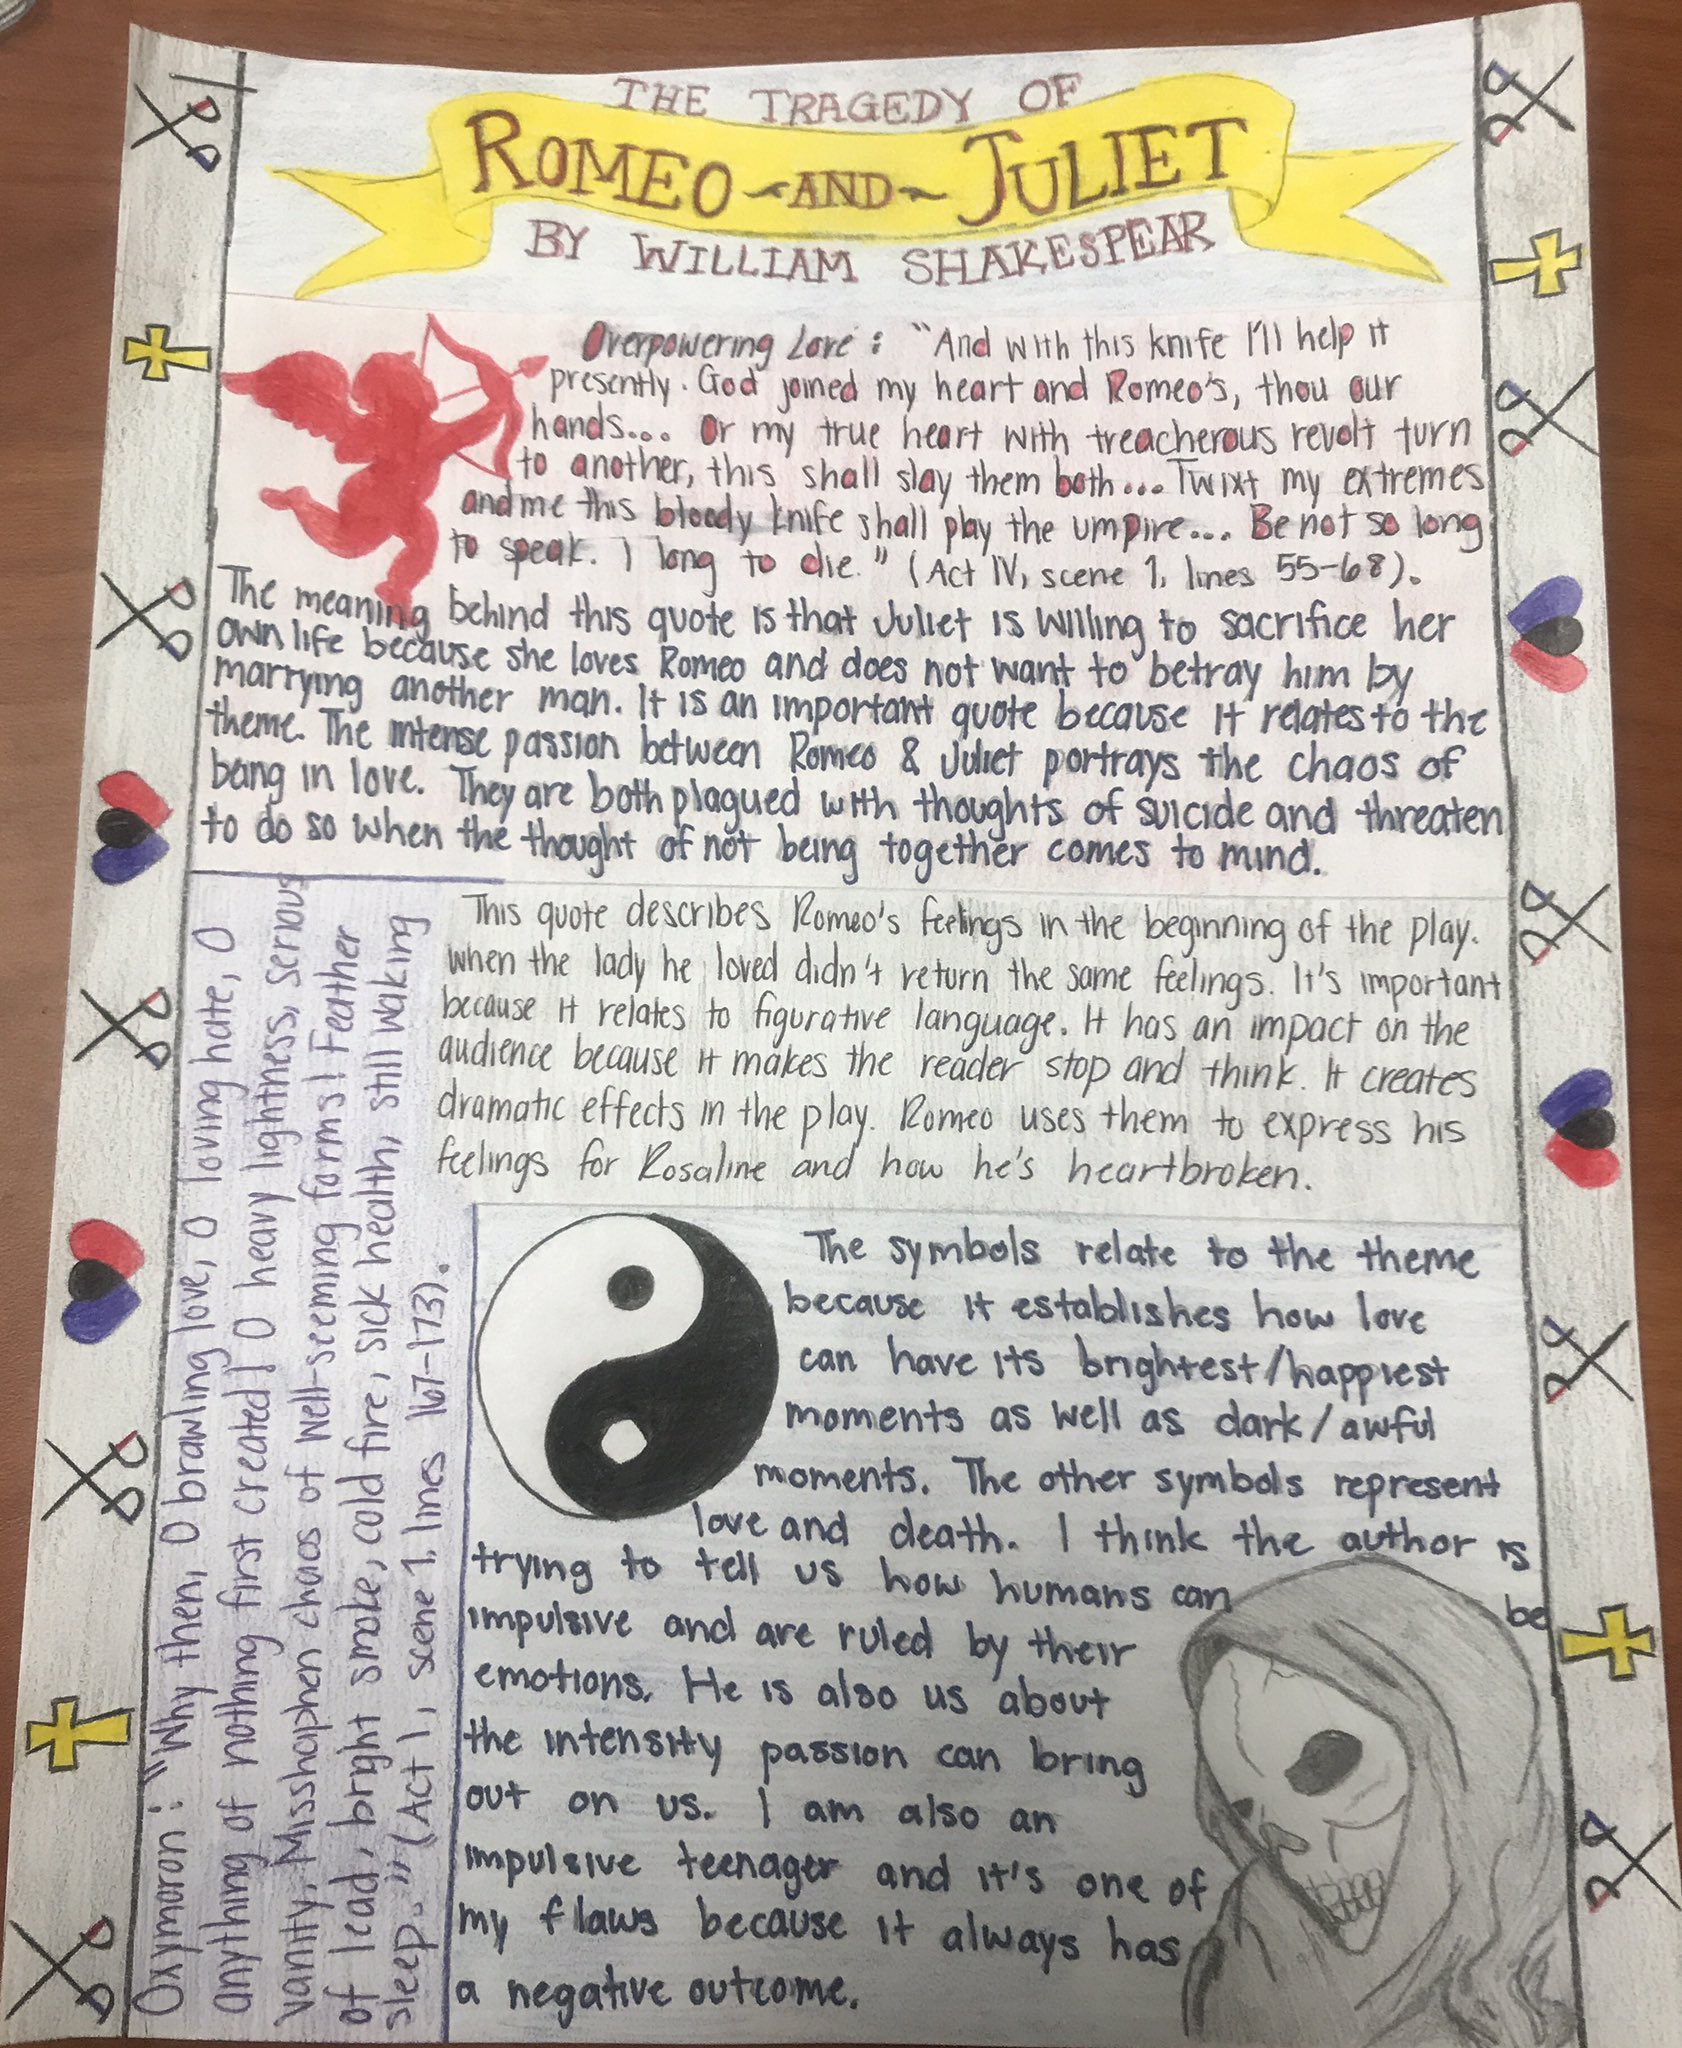 THE TRAGEDY OF
ROMEO AND JULIET
BY WILLIAM SHAKESPEAR
Overpowering Love: "And with this knife I'll help it
presently. God joined my heart and Romeo's, thou our
hands... Or my true heart with treacherous revolt turn
to another, this shall slay them both... Twixt my extremes
and me this bloody knife shall play the umpire... Be not so long
to speak. I long to die." (Act IV, scene 1, lines 55-68).
The meaning behind this quote is that Juliet is willing to sacrifice her
own life because she loves Romeo and does not want to betray him by
marrying another man. It is an important quote because it relates to the
theme. The intense passion between Romeo & Juliet portrays the chaos of
being in love. They are both plagued with thoughts of suicide and threaten
to do so when the thought of not being together comes to mind.
Oxymoron: "Why then, O brawling love, O loving hate, O
anything of nothing first created! O heavy lightness, serious
vanity, Misshaphen chaos of well-seeming forms! Feather
of lead, bright smoke, cold fire, sick health, still waking
sleep." (Act 1, scene 1, lines 167-173).
This quote describes Romeo's feelings in the beginning of the play.
when the lady he loved didn't return the same feelings. It's important
because it relates to figurative language. It has an impact on the
audience because it makes the reader stop and think. It creates
dramatic effects in the play. Romeo uses them to express his
feelings for Rosaline and how he's heartbroken.
The symbols relate to the theme
because it establishes how love
can have its brightest/happiest
moments as well as dark/awful
moments. The other symbols represent
love and death. I think the author is
trying to tell us how humans can be
impulsive and are ruled by their
emotions. He is also us about
the intensity passion can bring
out on us. I am also an
impulsive teenager and it's one of
my flaws because it always has
a negative outcome.